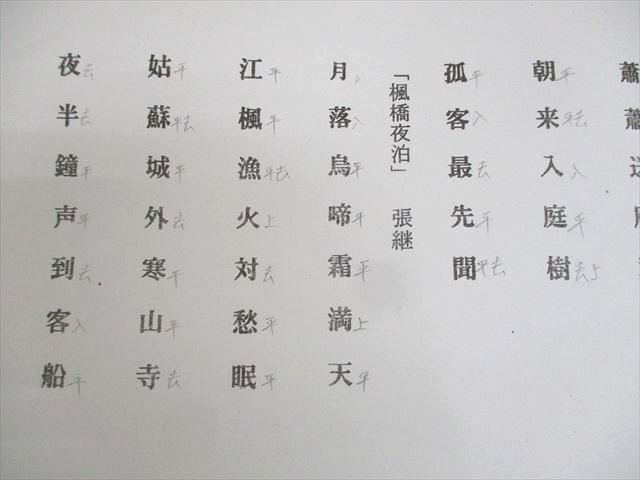 蕭蕭送
朝平来平去入入庭平樹去上
孤平客入最去先平聞平去
「楓橋夜泊」 張継
月入落入烏平啼平霜平満上天平
江平楓平漁平去火上対去愁平眠平
姑平蘇平去城平外去寒平山平寺去
夜去半去鐘平声平到去客入船平